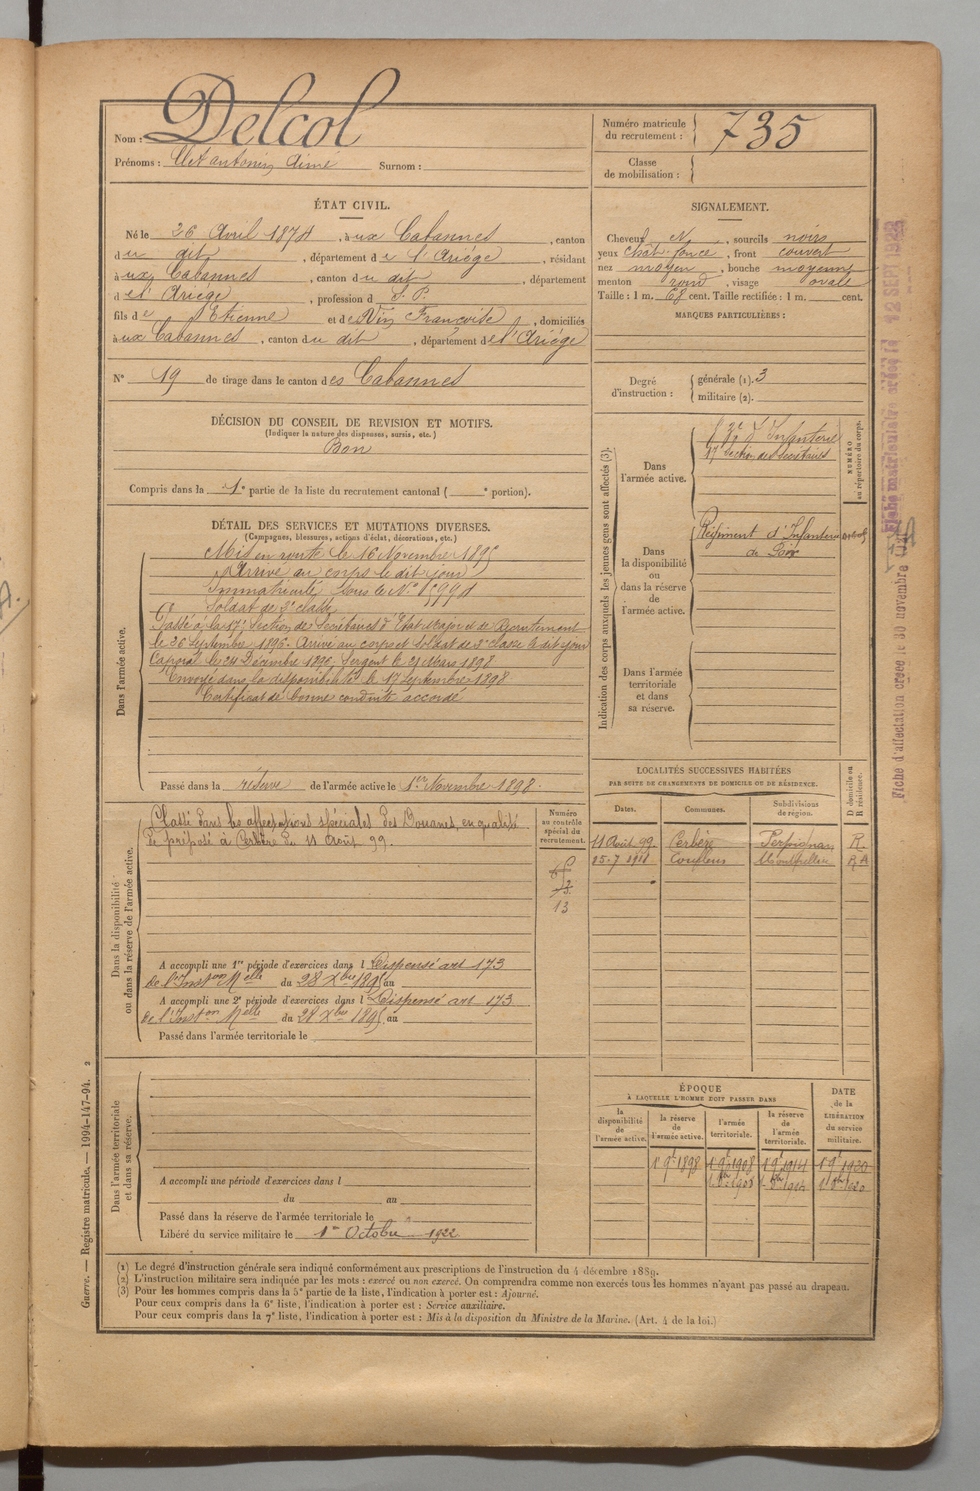 Nom : Delcol
Prénoms : Clet antonin Aimé Surnom :
Numéro matricule du recrutement : 735
Classe de mobilisation :
ÉTAT CIVIL.
Né le 26 Avril 1874, à ux Cabannes, canton
du dit, département de l'Ariège, résidant
à ux Cabannes, canton du dit, département
de l'Ariège, profession d S. P.
fils de Etienne et de Françoise, domiciliés
à ux Cabannes, canton du dit, département de l'Ariége
N° 19 de tirage dans le canton des Cabannes
SIGNALEMENT.
Cheveux et, sourcils noirs
yeux chât. foncé, front couvert
nez moyen, bouche moyenne
menton rond, visage ovale
Taille : 1 m. 68 cent. Taille rectifiée : 1 m. cent.
MARQUES PARTICULIÈRES :
Degré d'instruction : générale (1). 3
militaire (2).
DÉCISION DU CONSEIL DE REVISION ET MOTIFS.
(Indiquer la nature des dispenses, sursis, etc.)
Bon
Compris dans la 1e partie de la liste du recrutement cantonal ( e portion).
DÉTAIL DES SERVICES ET MUTATIONS DIVERSES.
(Campagnes, blessures, actions d'éclat, décorations, etc.)
Dans l'armée active.
Mis en route le 16 Novembre 1895
Arrivé au corps le dit jour
Immatriculé sous le N°
Soldat de 2e classe
Passé à la 17e Section de Secrétaires d'Etat-major et de Recrutement
le 26 Septembre 1896. Arrivé au corps et soldat de 2e classe le dit jour
Caporal le 24 Décembre 1896. Sergent le 21 Mars 1898
Envoyé dans la disponibilité le 17 Septembre 1898
Certificat de bonne conduite accordé
Passé dans la réserve de l'armée active le 1er Novembre 1898.
Indication des corps auxquels les jeunes gens sont affectés (3).
NUMÉRO au répertoire du corps.
Dans l'armée active.
d'Infanterie
17e Section des Secrétaires
Dans la disponibilité ou dans la réserve de l'armée active.
Régiment d'Infanterie
de Foix
Dans l'armée territoriale et dans sa réserve.
Dans la disponibilité ou dans la réserve de l'armée active.
Classé dans les affectations spéciales des Douanes, en qualité
de préposé à Cerbère le 11 Août 99.
Numéro au contrôle spécial du recrutement.
13
A accompli une 1re période d'exercices dans l Dispensé art 173
de l'Inston Melle du 28 Xbre 1895 au
A accompli une 2e période d'exercices dans l Dispensé art 173
de l'Inston Melle du 28 Xbre 1895 au
Passé dans l'armée territoriale le
LOCALITÉS SUCCESSIVES HABITÉES
PAR SUITE DE CHANGEMENTS DE DOMICILE OU DE RÉSIDENCE.
Dates. Communes. Subdivisions de région. D domicile ou R résidence.
11 Août 99. Cerbère Perpignan R.
25-7 1911 Couflens Montpellier R A
Dans l'armée territoriale et dans sa réserve.
A accompli une période d'exercices dans l
du au
Passé dans la réserve de l'armée territoriale le
Libéré du service militaire le 1er Octobre 1922
ÉPOQUE
À LAQUELLE L'HOMME DOIT PASSER DANS
la disponibilité de l'armée active. la réserve de l'armée active. l'armée territoriale. la réserve de l'armée territoriale. DATE de la LIBÉRATION du service militaire.
1 9e 1898 1 9e 1908 1 9e 1914 1 9e 1920
1 8bre 1908 1 8bre 1914 1 8bre 1920
(1) Le degré d'instruction générale sera indiqué conformément aux prescriptions de l'instruction du 4 décembre 1889.
(2) L'instruction militaire sera indiquée par les mots : exercé ou non exercé. On comprendra comme non exercés tous les hommes n'ayant pas passé au drapeau.
(3) Pour les hommes compris dans la 5e partie de la liste, l'indication à porter est : Ajourné.
Pour ceux compris dans la 6e liste, l'indication à porter est : Service auxiliaire.
Pour ceux compris dans la 7e liste, l'indication à porter est : Mis à la disposition du Ministre de la Marine. (Art. 4 de la loi.)
Guerre. — Registre matricule. — 1994-147-94. 2
Fiche matriculaire créée le 12 SEPT 1923
Fiche d'affectation créée le 30 novembre